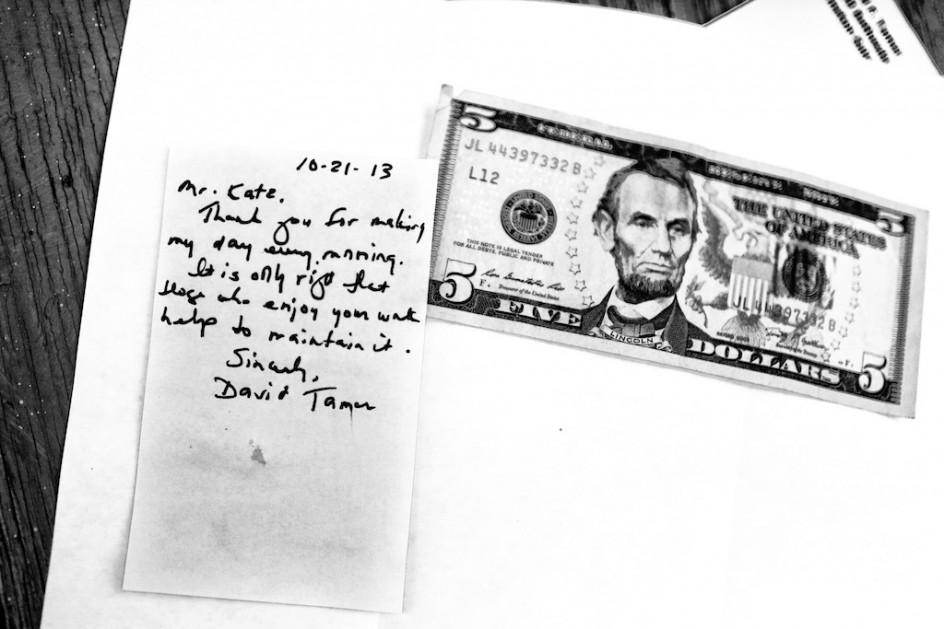 10-21-13
Mr. Katz,
Thank you for making
my day every morning.
It is only right that
those who enjoy your work
help to maintain it.
Sincerely,
David
5
FEDERAL RESERVE NOTE
5
JL 44397332 B
L12
THE UNITED STATES
OF AMERICA
THIS NOTE IS LEGAL TENDER
FOR ALL DEBTS, PUBLIC AND PRIVATE
JL 44397332 B
Treasurer of the United States
5
FIVE
LINCOLN
DOLLARS
5